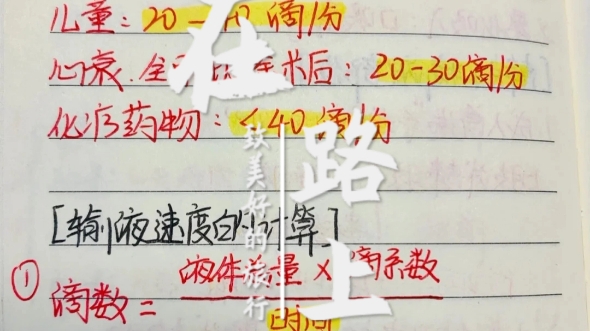 儿童：20-40滴/分
心衰.全 术后：20-30滴/分
化疗药物：<40滴/分
[输液速度的计算]
① 滴数= 液体总量×滴系数
时间
在路上
致美好的旅行